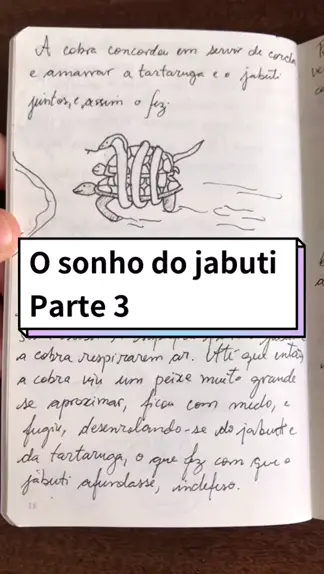 A cobra concorda em servir de corda
e amarrar a tartaruga e o jabuti
juntos, e assim o fez.
O sonho do jabuti
Parte 3
a cobra respirarem ar. Até que então
a cobra viu um peixe muito grande
se aproximar, ficou com medo, e
fugiu, desenrolando-se do jabuti e
da tartaruga, o que fez com que o
jabuti afundasse, indefeso.
16